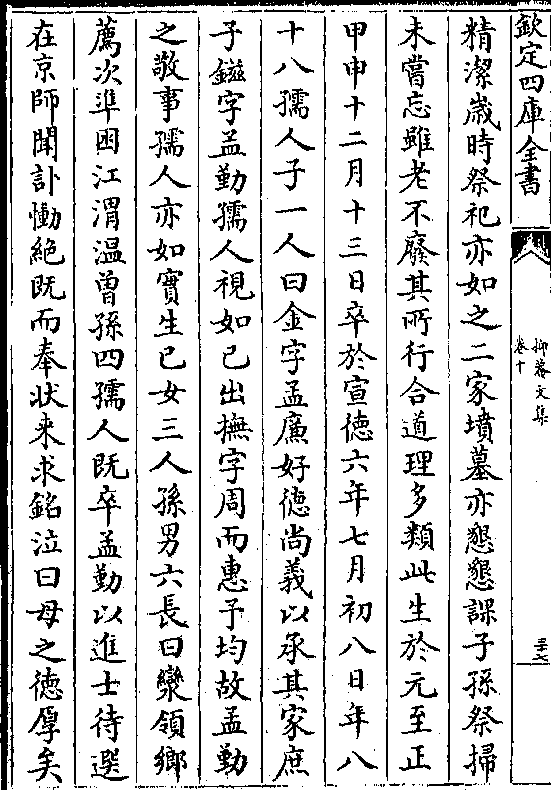 欽定四庫全書
抑菴文集
卷十
三十七
精潔歲時祭祀亦如之二家墳墓亦懇懇課子孫祭掃
未嘗忘雖老不廢其所行合道理多類此生於元至正
甲申十二月十三日卒於宣德六年七月初八日年八
十八孺人子一人曰金字孟廉好德尚義以承其家庶
子鎡字孟勤孺人視如己出撫字周而惠予均故孟勤
之敬事孺人亦如實生已女三人孫男六長曰欒領鄉
薦次準囦江渭温曾孫四孺人既卒孟勤以進士待選
在京師聞訃慟絕既而奉狀来求銘泣曰母之德厚矣